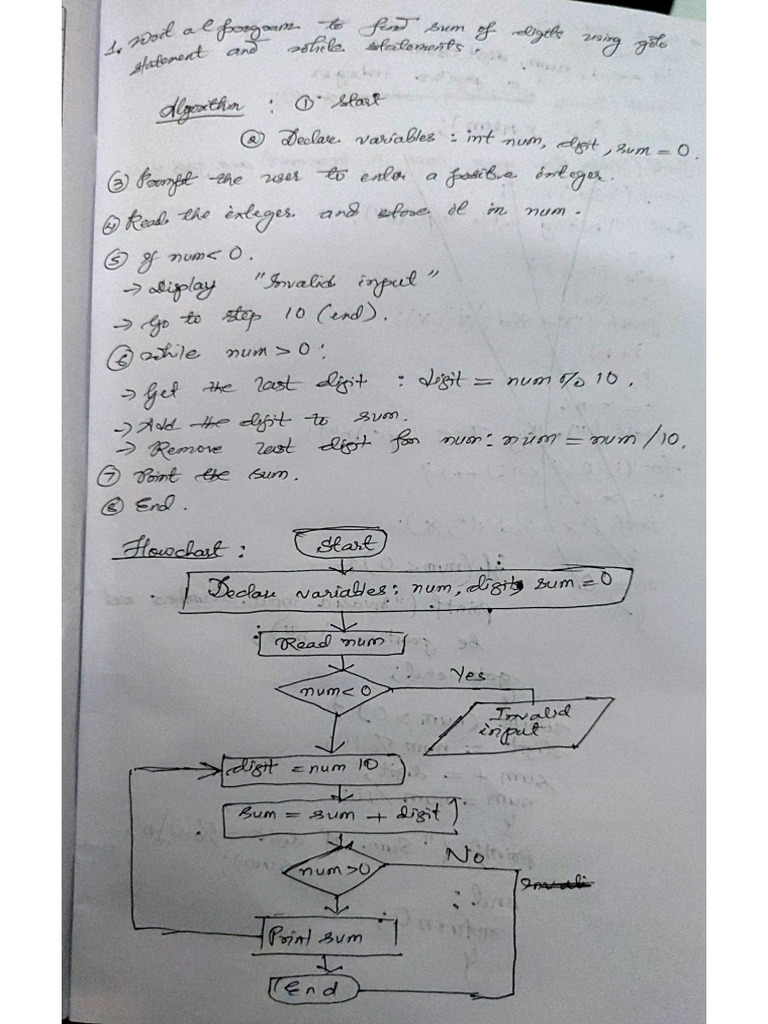 1. Writ a C program to find sum of digits using goto
statement and while statements.
Algorithm : ① Start
② Declare variables : int num, digit, sum = 0.
③ Prompt the user to enter a positive integer.
④ Read the integer and store it in num.
⑤ If num < 0.
→ Display "Invalid input"
→ Go to step 10 (end).
⑥ While num > 0 :
→ Get the last digit : digit = num % 10.
→ Add the digit to sum.
→ Remove last digit for num : num = num / 10.
⑦ Print the sum.
⑧ End.
Flowchart :
Start
Declare variables: num, digit, sum = 0
Read num
num < 0
Yes
Invalid
input
digit = num 10
sum = sum + digit
No
num > 0
Print sum
End